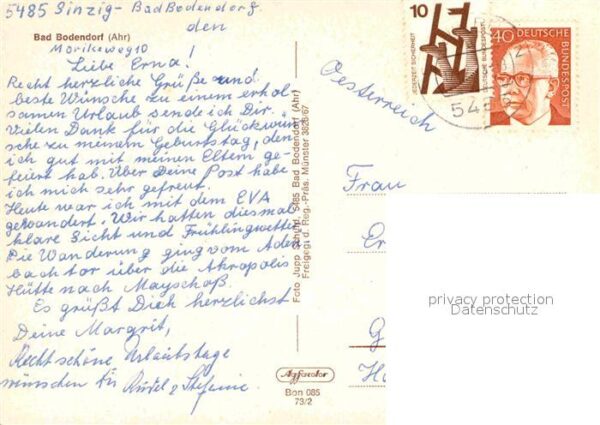 5485 Sinzig-Bad Bodendorf
den
Bad Bodendorf (Ahr)
Mörikeweg 10
Liebe Erna!
Recht herzliche Grüße und
beste Wünsche zu einem erhol-
samen Urlaub sende ich Dir.
Vielen Dank für die Glückwün
sche zu meinem Geburtstag, den
ich gut mit meinen Eltern ge-
feiert hab. Über Deine Post habe
ich mich sehr gefreut.
Heute war ich mit dem EVA
gewandert. Wir hatten diesmal
klare Sicht und Frühlingswetter.
Die Wanderung ging vom Aden
bachtor über die Akropolis
Hütte nach Mayschoß.
Es grüßt Dich herzlichst
Deine Margrit,
Recht schöne Urlaubstage
wünschen
Foto Jupp 5485 Bad Bodendorf (Ahr)
Freigeg. d. Reg.-Präs. Münster
Agfacolor
Bon 085
73/2
10
JEDERZEIT SICHERHEIT
DEUTSCHE BUNDESPOST
40 DEUTSCHE
BUNDESPOST
Oesterreich
Frau
Er
G
Ho
privacy protection
Datenschutz